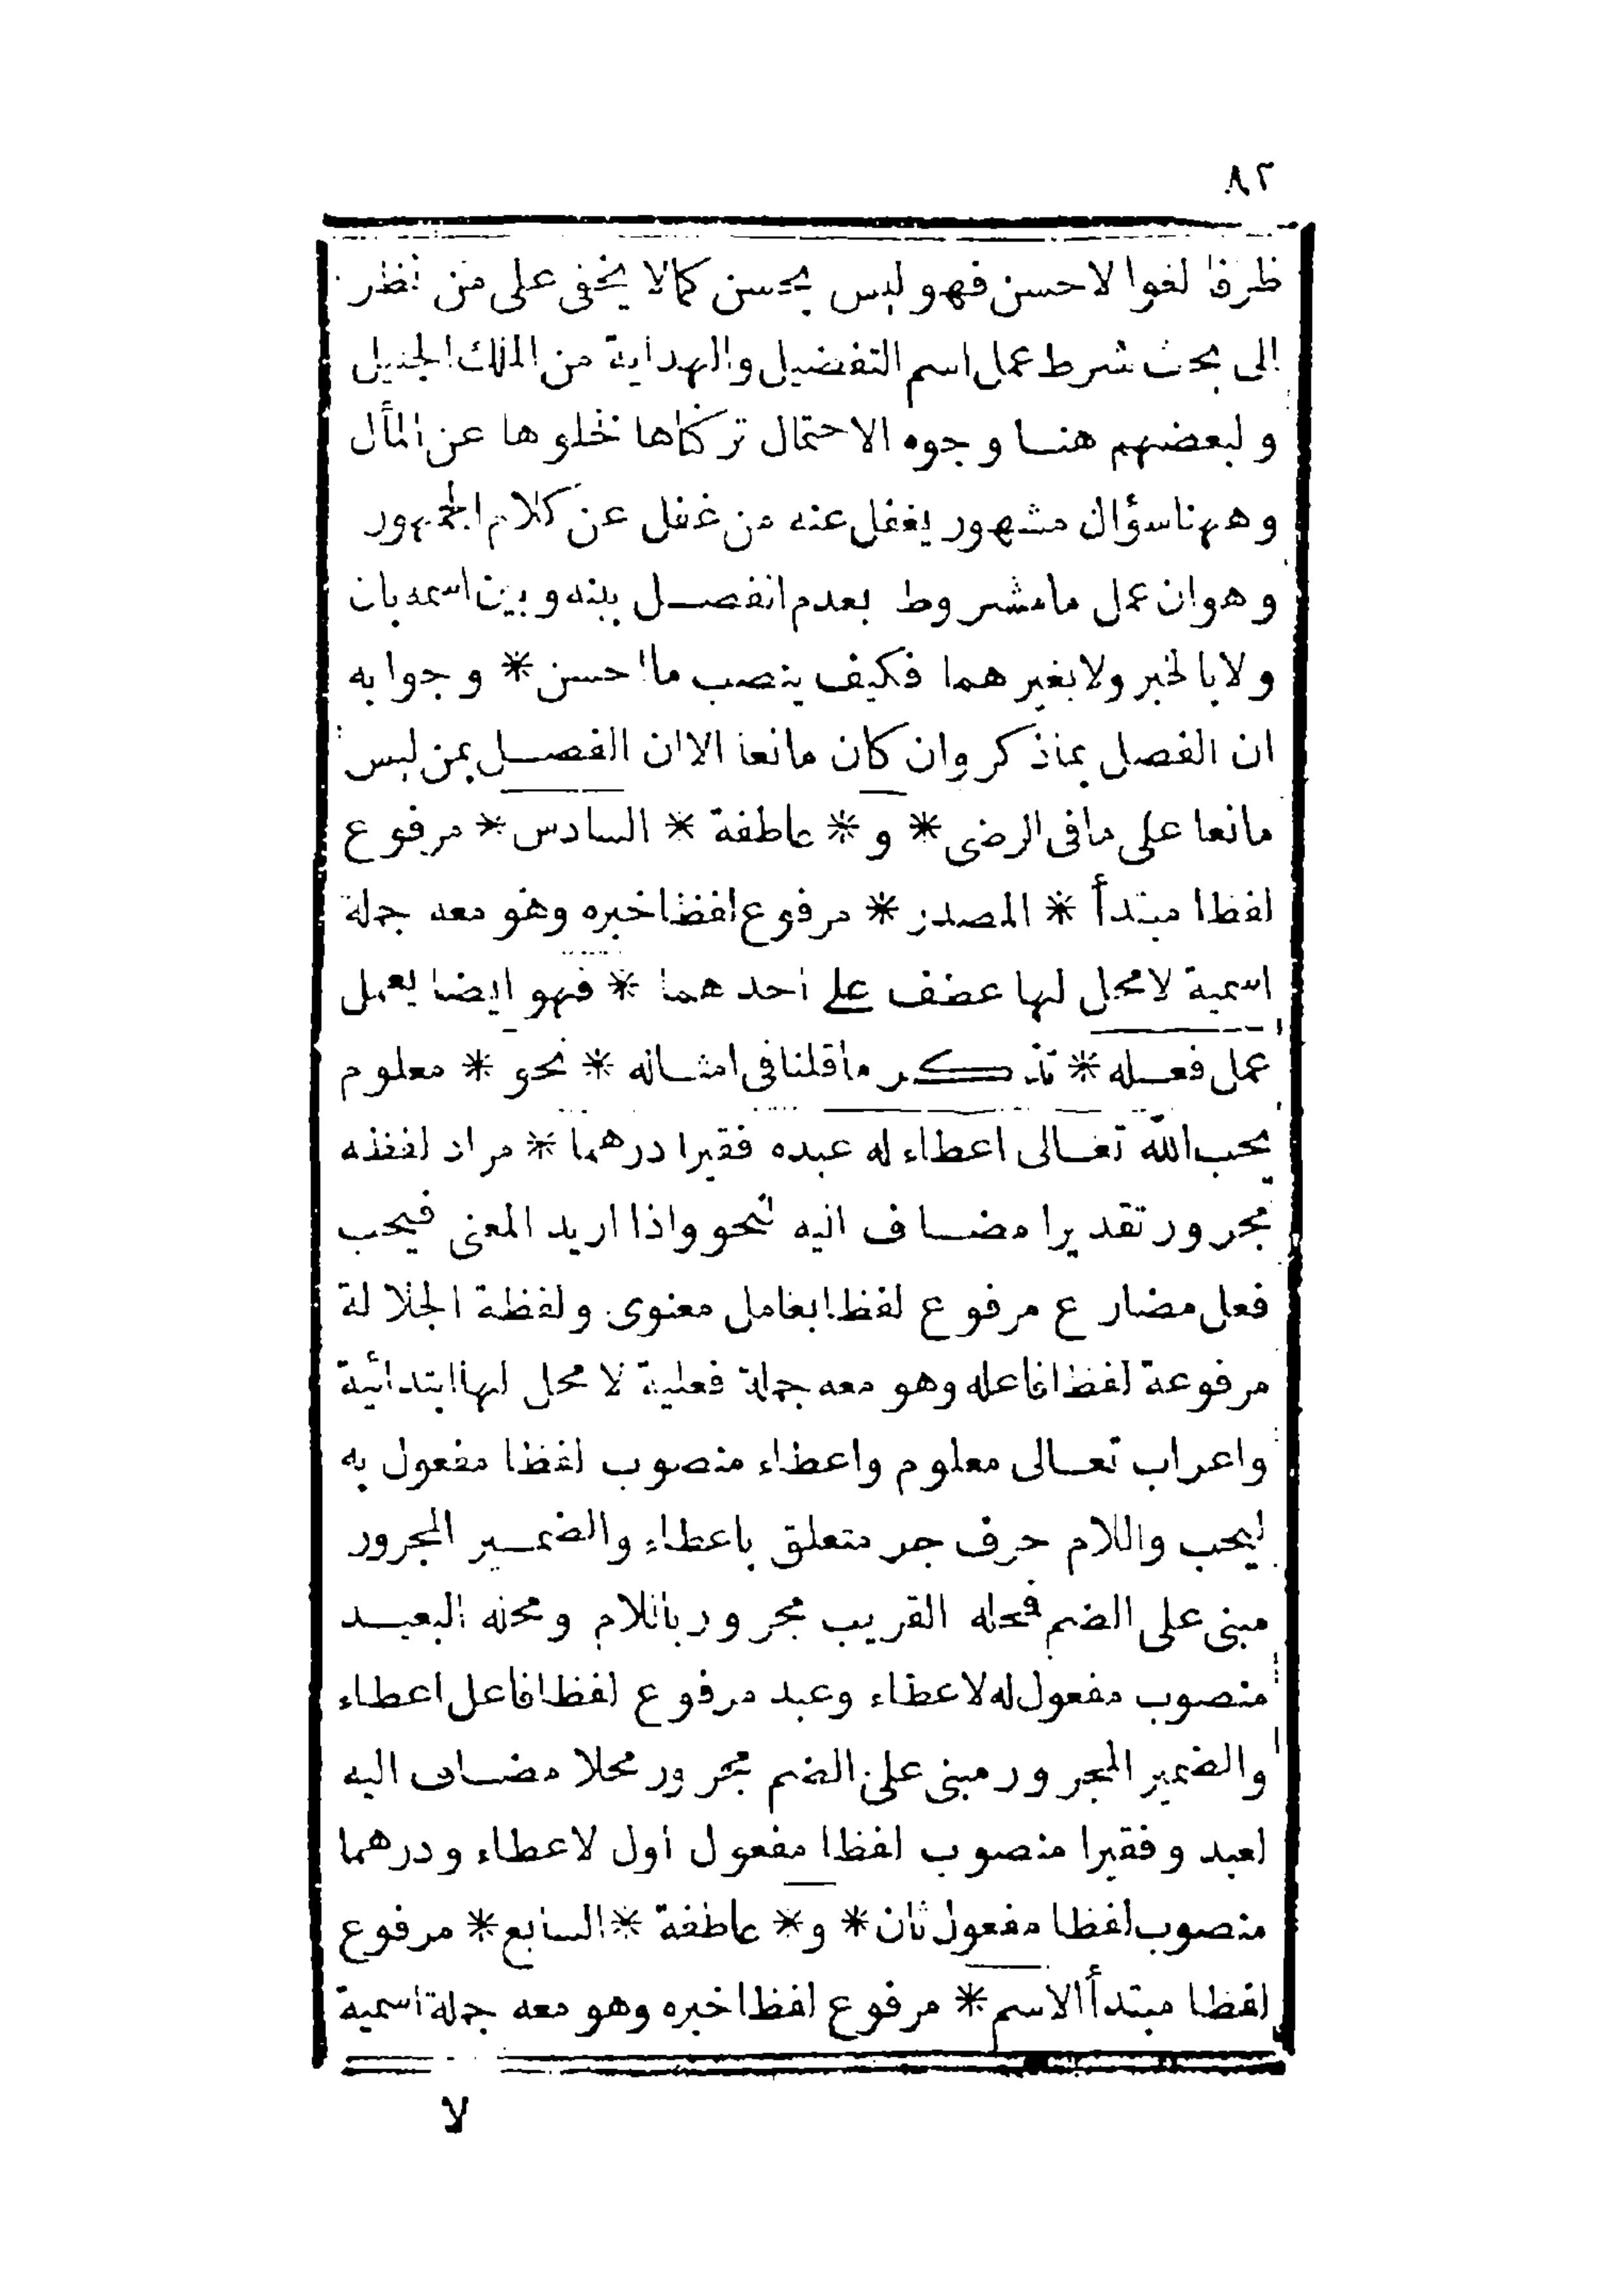 ٨٢
ظرفا لغوا لاحسن فهو ليس بحسن كما لا يخفى على من نظر
الى بحث شرط عمل اسم التفضيل والهداية من الملك الجليل
ولبعضهم هنا وجوه الاحتمال تركناها لخلوها عن المأل
وههنا سؤال مشهور يغفل عنه من غفل عن كلام الجمهور
وهو ان عمل ما مشروط بعدم انفصل بينه وبين اسمه بان
ولا بالخبر ولا بغيرهما فكيف ينصب ما احسن * وجوابه
ان الفصل بما ذكر وان كان مانعا الا ان الفصل بمن ليس
مانعا على ما فى الرضى * و * عاطفة * السادس * مرفوع
لفظا مبتدأ * المصدر * مرفوع لفظا خبره وهو معه جملة
اسمية لا محل لها عطف على احدهما * فهو ايضا يعمل
عمل فعله * تذكر ما قلنا فى امثاله * نحو * معلوم
يحب الله تعالى اعطاء له عبده فقيرا درهما * مراد لفظه
مجرور تقديرا مضاف اليه لنحو واذا اريد المعنى فيحب
فعل مضارع مرفوع لفظا بعامل معنوى ولفظة الجلالة
مرفوعة لفظا فاعله وهو معه جملة فعلية لا محل لها ابتدائية
واعراب تعالى معلوم واعطاء منصوب لفظا مفعول به
ليحب واللام حرف جر متعلق باعطاء والضمير المجرور
مبنى على الضم فمحله القريب مجرور باللام ومحله البعيد
منصوب مفعول له لاعطاء وعبد مرفوع لفظا فاعل اعطاء
والضمير المجرور مبنى على الضم مجرور محلا مضاف اليه
لعبد وفقيرا منصوب لفظا مفعول اول لاعطاء ودرهما
منصوب لفظا مفعول ثان * و * عاطفة * السابع * مرفوع
لفظا مبتدأ الاسم * مرفوع لفظا خبره وهو معه جملة اسمية
لا